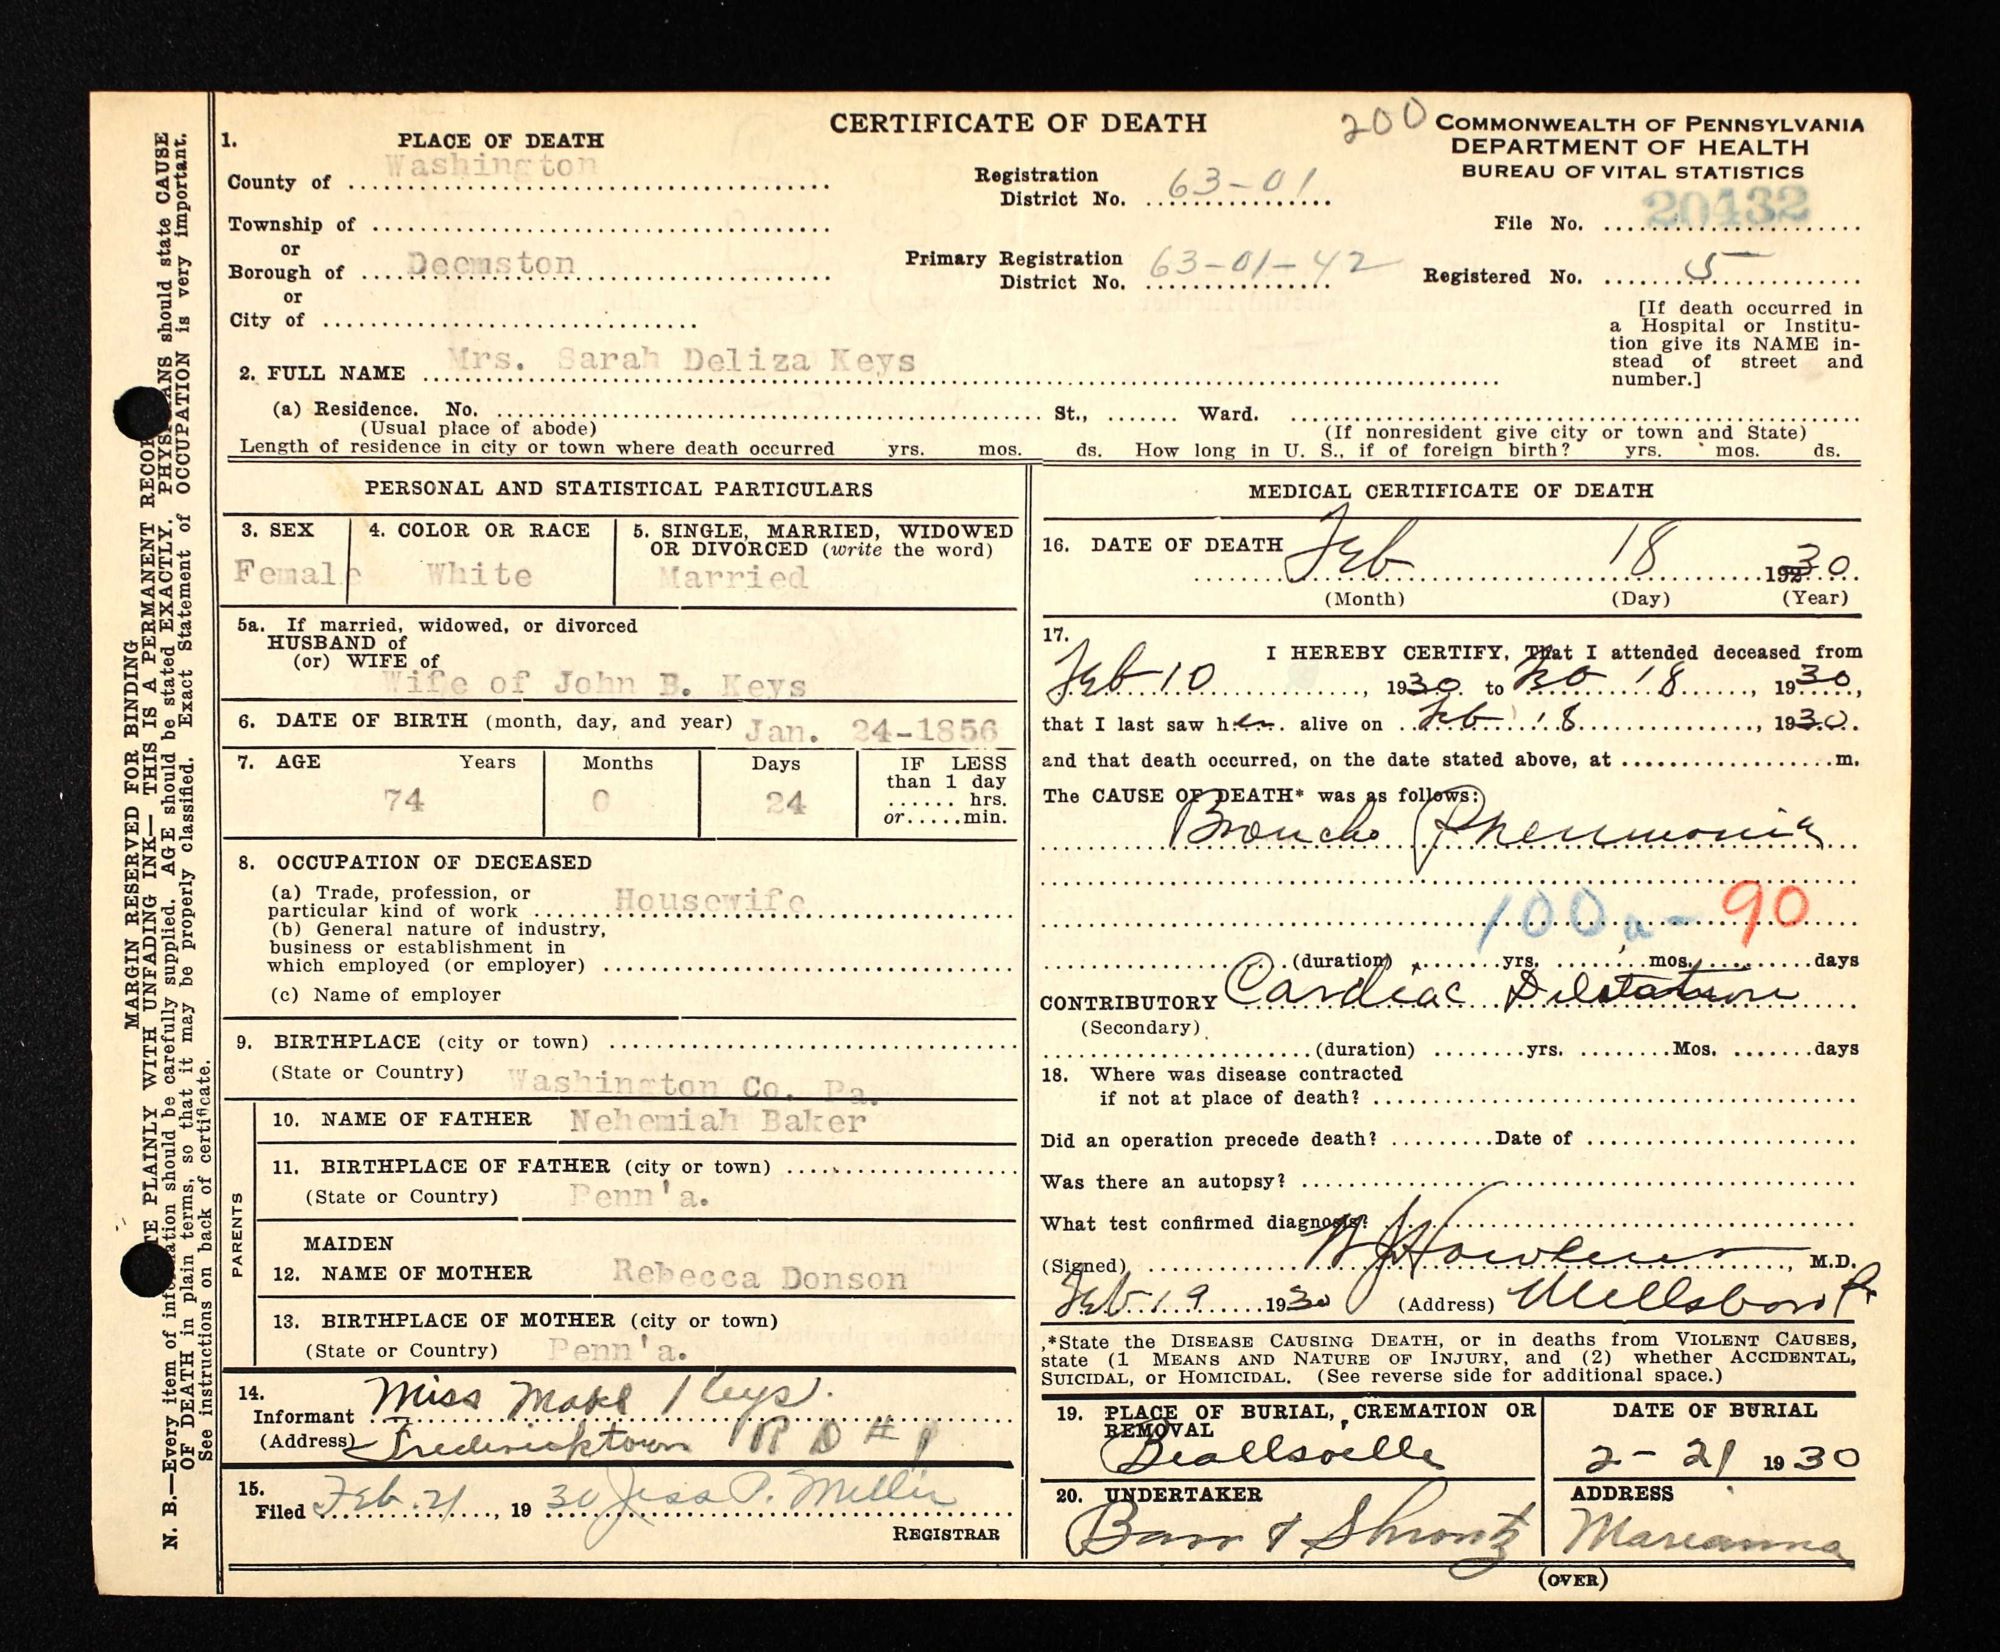 CERTIFICATE OF DEATH
200
COMMONWEALTH OF PENNSYLVANIA
DEPARTMENT OF HEALTH
BUREAU OF VITAL STATISTICS
1. PLACE OF DEATH
County of Washington
Registration District No. 63-01
File No. 20432
Township of
or
Borough of Deemston
Primary Registration District No. 63-01-42
Registered No. 5
or
City of
[If death occurred in
a Hospital or Institu-
tion give its NAME in-
stead of street and
number.]
2. FULL NAME Mrs. Sarah Deliza Keys
(a) Residence. No. St., Ward.
(Usual place of abode) (If nonresident give city or town and State)
Length of residence in city or town where death occurred yrs. mos. ds. How long in U. S., if of foreign birth? yrs. mos. ds.
PERSONAL AND STATISTICAL PARTICULARS
3. SEX
Female
4. COLOR OR RACE
White
5. SINGLE, MARRIED, WIDOWED
OR DIVORCED (write the word)
Married
5a. If married, widowed, or divorced
HUSBAND of
(or) WIFE of
Wife of John B. Keys
6. DATE OF BIRTH (month, day, and year) Jan. 24-1856
7. AGE Years Months Days IF LESS
than 1 day
74 0 24 hrs.
or min.
8. OCCUPATION OF DECEASED
(a) Trade, profession, or
particular kind of work Housewife
(b) General nature of industry,
business or establishment in
which employed (or employer)
(c) Name of employer
9. BIRTHPLACE (city or town)
(State or Country) Washington Co. Pa.
PARENTS
10. NAME OF FATHER Nehemiah Baker
11. BIRTHPLACE OF FATHER (city or town)
(State or Country) Penn'a.
MAIDEN
12. NAME OF MOTHER Rebecca Donson
13. BIRTHPLACE OF MOTHER (city or town)
(State or Country) Penn'a.
14. Informant Miss Mabl Keys.
(Address) Fredericktown RD #1
15. Filed Feb. 21, 1930 Jess P. Miller
REGISTRAR
MEDICAL CERTIFICATE OF DEATH
16. DATE OF DEATH Feb 18 19230
(Month) (Day) (Year)
17. I HEREBY CERTIFY, That I attended deceased from
Feb 10, 1930 to Feb 18, 1930,
that I last saw her alive on Feb 18, 1930.
and that death occurred, on the date stated above, at m.
The CAUSE OF DEATH* was as follows:
Broncho Pneumonia
100a - 90
(duration) yrs. mos. days
CONTRIBUTORY Cardiac Dilatation
(Secondary)
(duration) yrs. Mos. days
18. Where was disease contracted
if not at place of death?
Did an operation precede death? Date of
Was there an autopsy?
What test confirmed diagnosis?
(Signed), M.D.
Feb 19 1930 (Address) Millsboro Pa
*State the DISEASE CAUSING DEATH, or in deaths from VIOLENT CAUSES,
state (1 MEANS AND NATURE OF INJURY, and (2) whether ACCIDENTAL,
SUICIDAL, or HOMICIDAL. (See reverse side for additional space.)
19. PLACE OF BURIAL, CREMATION OR
REMOVAL
Beallsville
DATE OF BURIAL
2-21 1930
20. UNDERTAKER
Barr & Shrontz
ADDRESS
Marianna
(OVER)
MARGIN RESERVED FOR BINDING
TE PLAINLY WITH UNFADING INK—THIS IS A PERMANENT RECOR
N. B.—Every item of information should be carefully supplied. AGE should be stated EXACTLY. PHYSICIANS should state CAUSE
OF DEATH in plain terms, so that it may be properly classified. Exact Statement of OCCUPATION is very important.
See instructions on back of certificate.